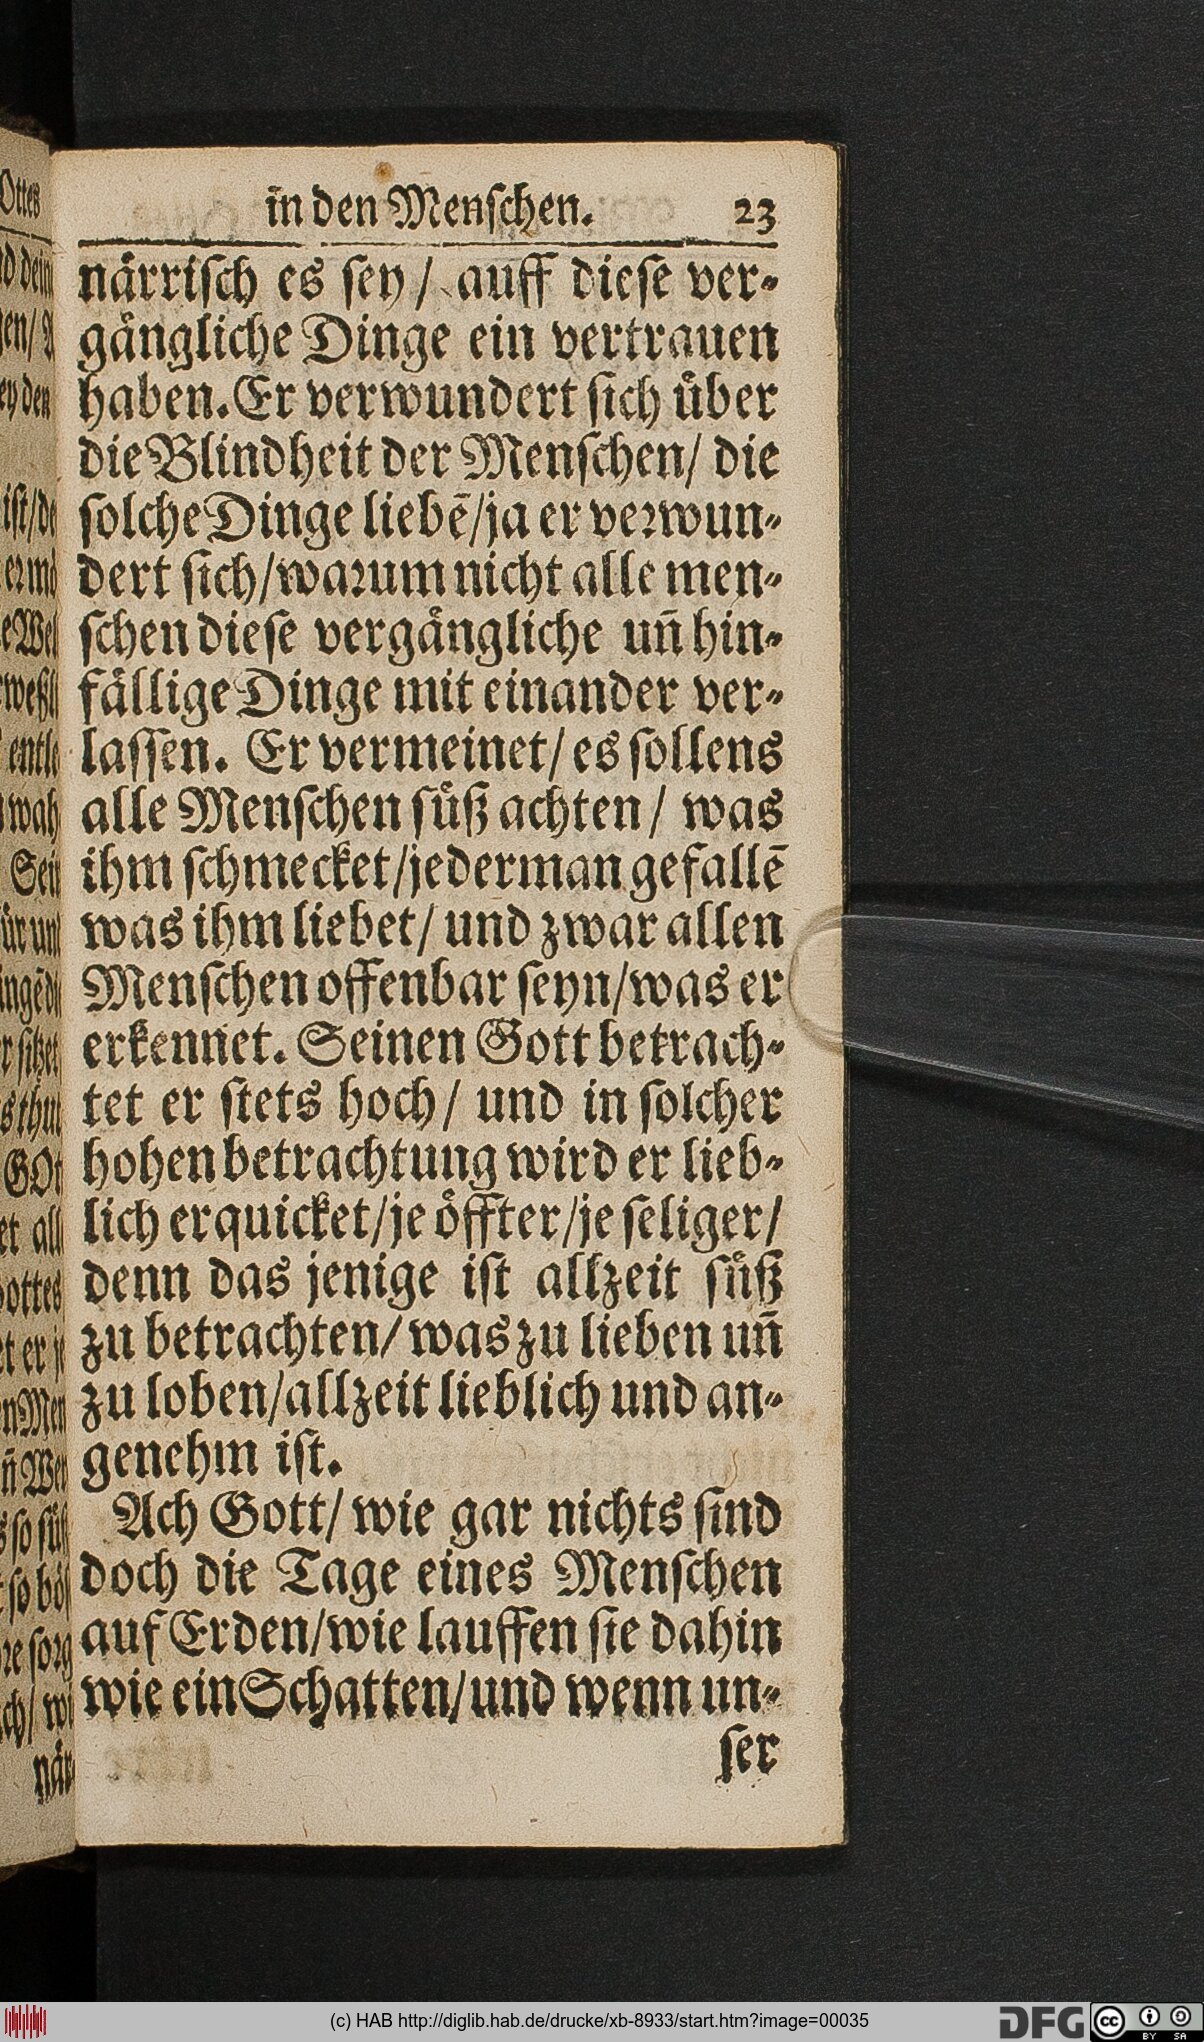 in den Menschen. 23
närrisch es sey/ auff diese ver-
gängliche Dinge ein vertrauen
haben. Er verwundert sich über
die Blindheit der Menschen/ die
solche Dinge liebē/ja er verwun-
dert sich/warum nicht alle men-
schen diese vergängliche uñ hin-
fällige Dinge mit einander ver-
lassen. Er vermeinet/ es sollens
alle Menschen süß achten/ was
ihm schmecket/jederman gefallē
was ihm liebet/ und zwar allen
Menschen offenbar seyn/was er
erkennet. Seinen Gott betrach-
tet er stets hoch/ und in solcher
hohen betrachtung wird er lieb-
lich erquicket/je öffter/je seliger/
denn das jenige ist allzeit süß
zu betrachten/ was zu lieben uñ
zu loben/allzeit lieblich und an-
genehm ist.
Ach Gott/ wie gar nichts sind
doch die Tage eines Menschen
auf Erden/wie lauffen sie dahin
wie ein Schatten/und wenn un-
ser
(c) HAB http://diglib.hab.de/drucke/xb-8933/start.htm?image=00035
DFG
cc BY SA